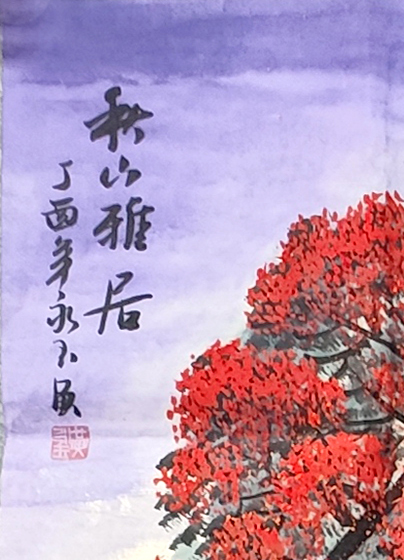 秋山雅居
丁酉年永